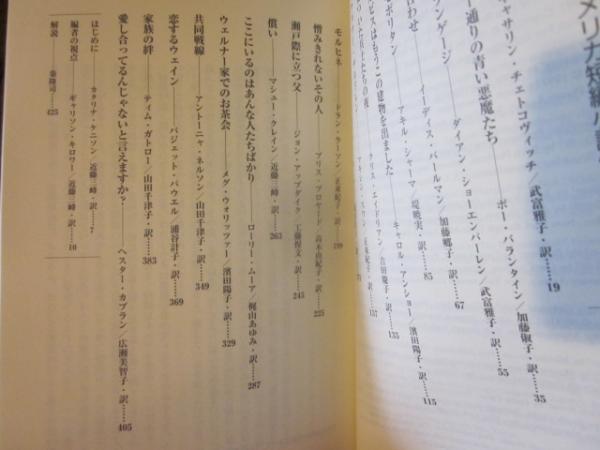 メリカ短編小説
キャサリン・チェトコヴィッチ/武富雅子・訳……19
ポー・バランタイン/加藤俶子・訳……35
ー通りの青い悪魔たち
ダイアン・ショーエンパーレン/武富雅子・訳……55
ソンゲージ
イーディス・パールマン/加藤郷子・訳……67
わせ
アキル・シャーマ/堤暁実・訳……85
ポリタン
キャロル・アンショー/濱田陽子・訳……115
ビスはもうこの建物を出ました
クリス・エイドリアン/吉田慶子・訳
モルヒネ ドラン・ラーソン/正東紀子・訳……199
憎みきれないその人 アリス・ブロヤード/高木由紀子・訳……225
瀬戸際に立つ父 ジョン・アップダイク/工藤惺文・訳……245
償い マシュー・クレイン/近藤三峰・訳……263
ここにいるのはあんな人たちばかり ローリー・ムーア/梶山あゆみ・訳……287
ウェルナー家でのお茶会 メグ・ウォリッツァー/濱田陽子・訳……329
共同戦線 アントーニャ・ネルソン/山田千津子・訳……349
恋するウェイン パジェット・パウエル/浦谷計子・訳……369
家族の絆 ティム・ガトロー/山田千津子・訳……383
愛し合ってるんじゃないと言えますか? ヘスター・カプラン/広瀬美智子・訳……405
はじめに カタリナ・ケニソン/近藤三峰・訳……7
編者の視点 ギャリソン・キロワー/近藤三峰・訳……10
解説 秦隆司……425